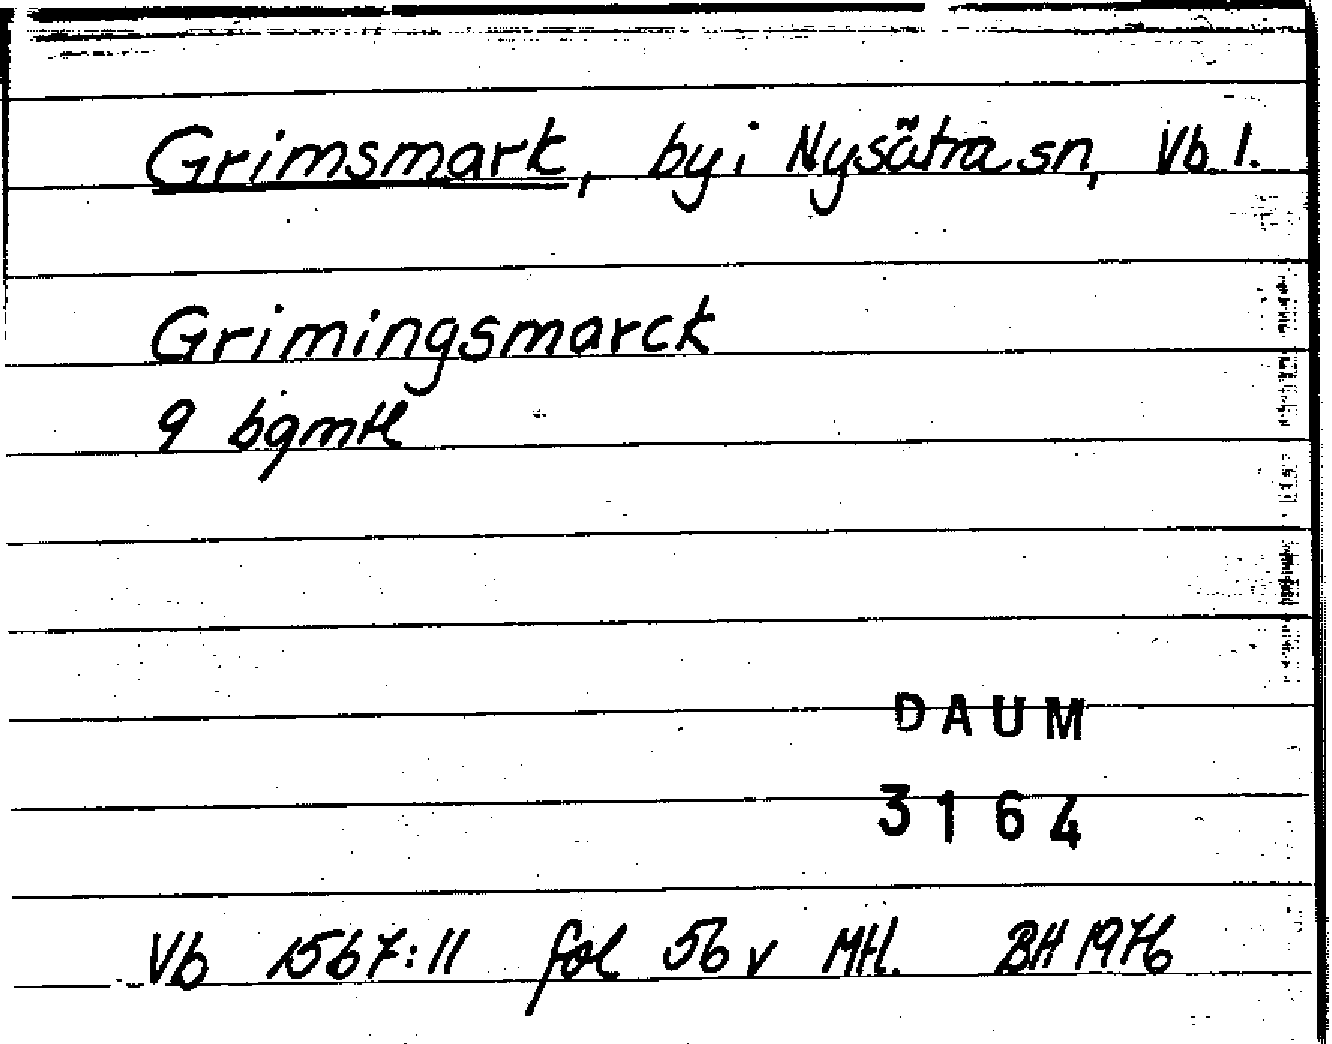 Grimsmark, by i Nysätra sn, Vb l.
Grimingsmarck
9 bgmtl
DAUM
3164
Vb 1567:11 fol 56 v Mtl. BH 1976